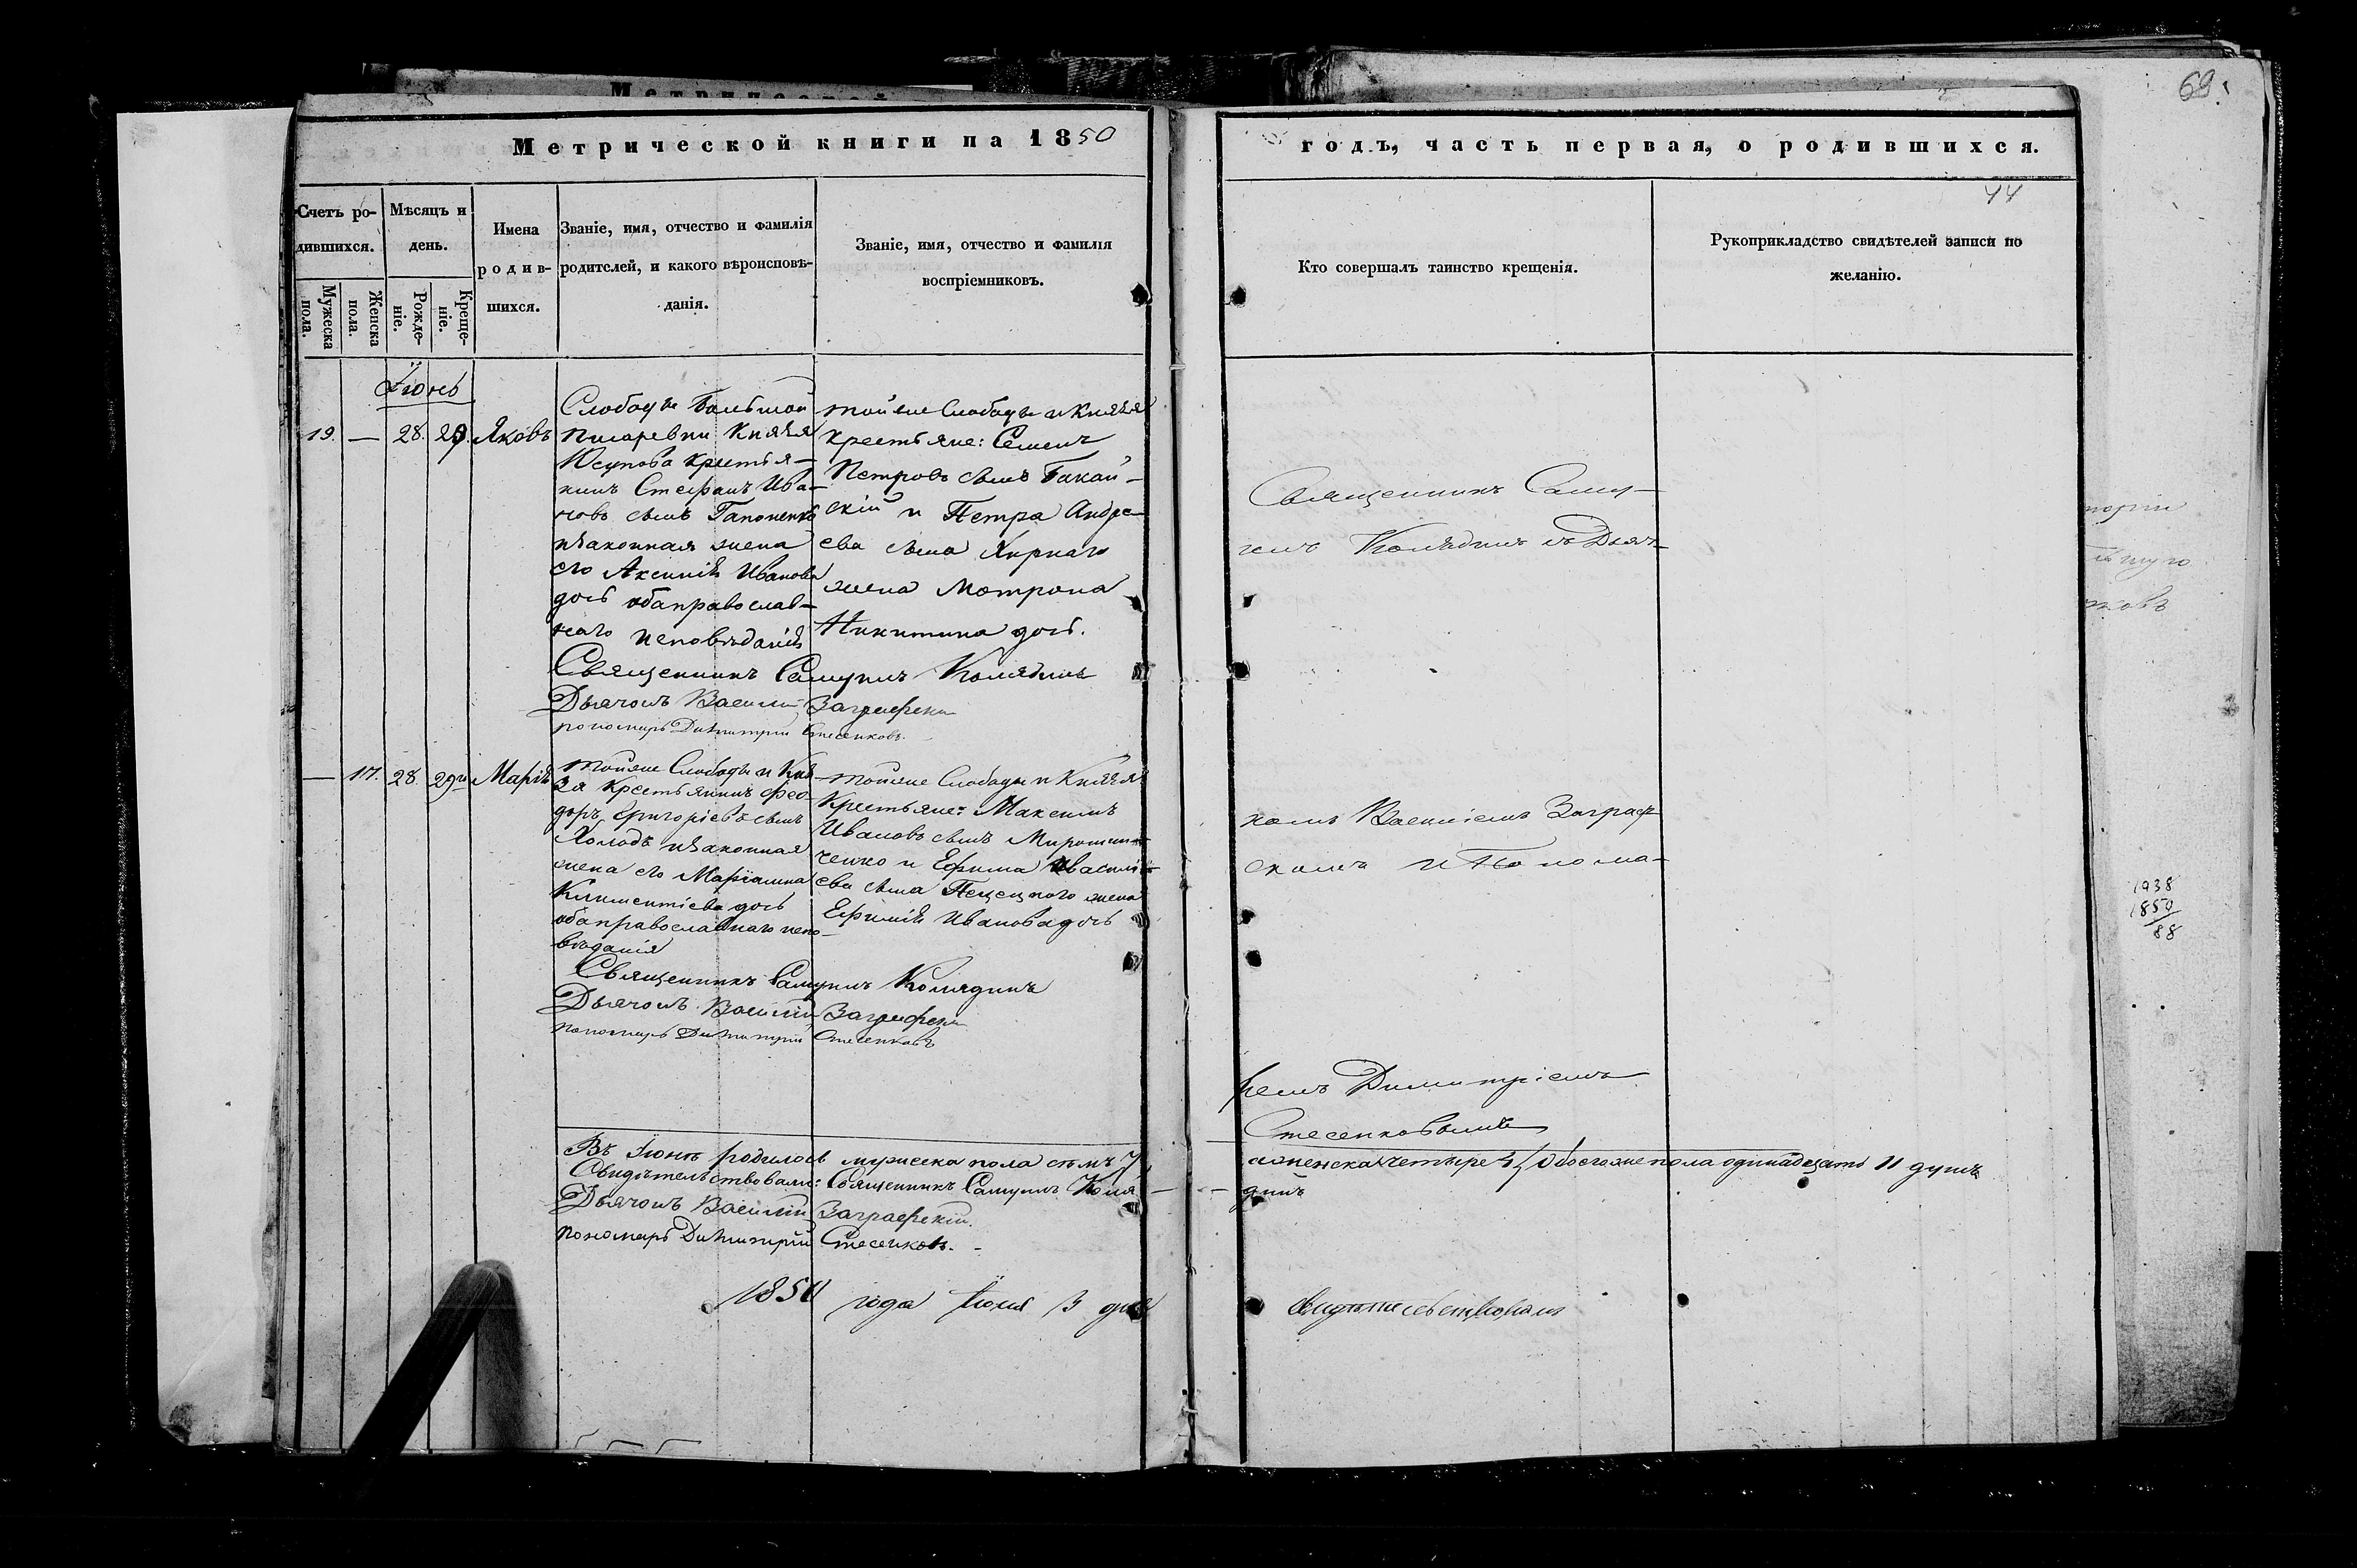 69.
Метрической книги на 1850
годъ, часть первая, о родившихся.
44
Счетъ ро-
дившихся.
Мужеска
пола.
Женска
пола.
Мѣсяцъ и
день.
Рожде-
ніе.
Креще-
ніе.
Имена
родив-
шихся.
Званіе, имя, отчество и фамилія
родителей, и какого вѣроисповѣ-
данія.
Званіе, имя, отчество и фамилія
воспріемниковъ.
Кто совершалъ таинство крещенія.
Рукоприкладство свидѣтелей записи по
желанію.
Іюнь
19. — 28. 29. Яковъ
Слободы Большой
Писаревки Князя
Юсупова крестья-
нинъ Стефанъ Ива-
новъ сынъ Гапоненко
и законная жена
его Аксинія Иванова
дочь оба православ-
наго исповѣданія
той же Слободы и Князя
крестьяне: Семенъ
Петровъ сынъ Бакай-
скій и Петра Андре-
ева сына Жирнаго
жена Мотрона
Никитина дочь.
Священникъ Самуилъ Колядинъ
Дьячокъ Василій Заграфскій
пономарь Димитрій Стесенковъ.
— 17. 28. 29го Марія
той же Слободы и Кня-
зя Крестьянинъ Фео-
доръ Григорієвъ сынъ
Холодъ и законная
жена его Маріамна
Климентіева дочь
оба православнаго испо-
вѣданія
той же Слободы и Князя
Крестьяне: Максимъ
Ивановъ сынъ Мирошни-
ченко и Ефима Василі-
ева сына жена
Ефимія Иванова дочь
Священникъ Самуилъ Колядинъ
Дьячокъ Василій Заграфскій
пономарь Димитрій Стесенковъ
Священникъ Самуи-
ломъ Колядинъ съ Дьяч-
комъ Василіемъ Заграф-
скимъ и Понома-
ремъ Димитріемъ
Стесенковымъ
Въ Іюнѣ родилось мужеска пола семь 7,
а женска четыре 4, обоего же пола одинадцать 11 душъ
Свидѣтельствовали: Священникъ Самуилъ Коля-
динъ
Дьячокъ Василій Заграфскій.
пономарь Димитрій Стесенковъ.
1850 года Іюля 3 дня
свидѣтельствовалъ
1938
1850
88